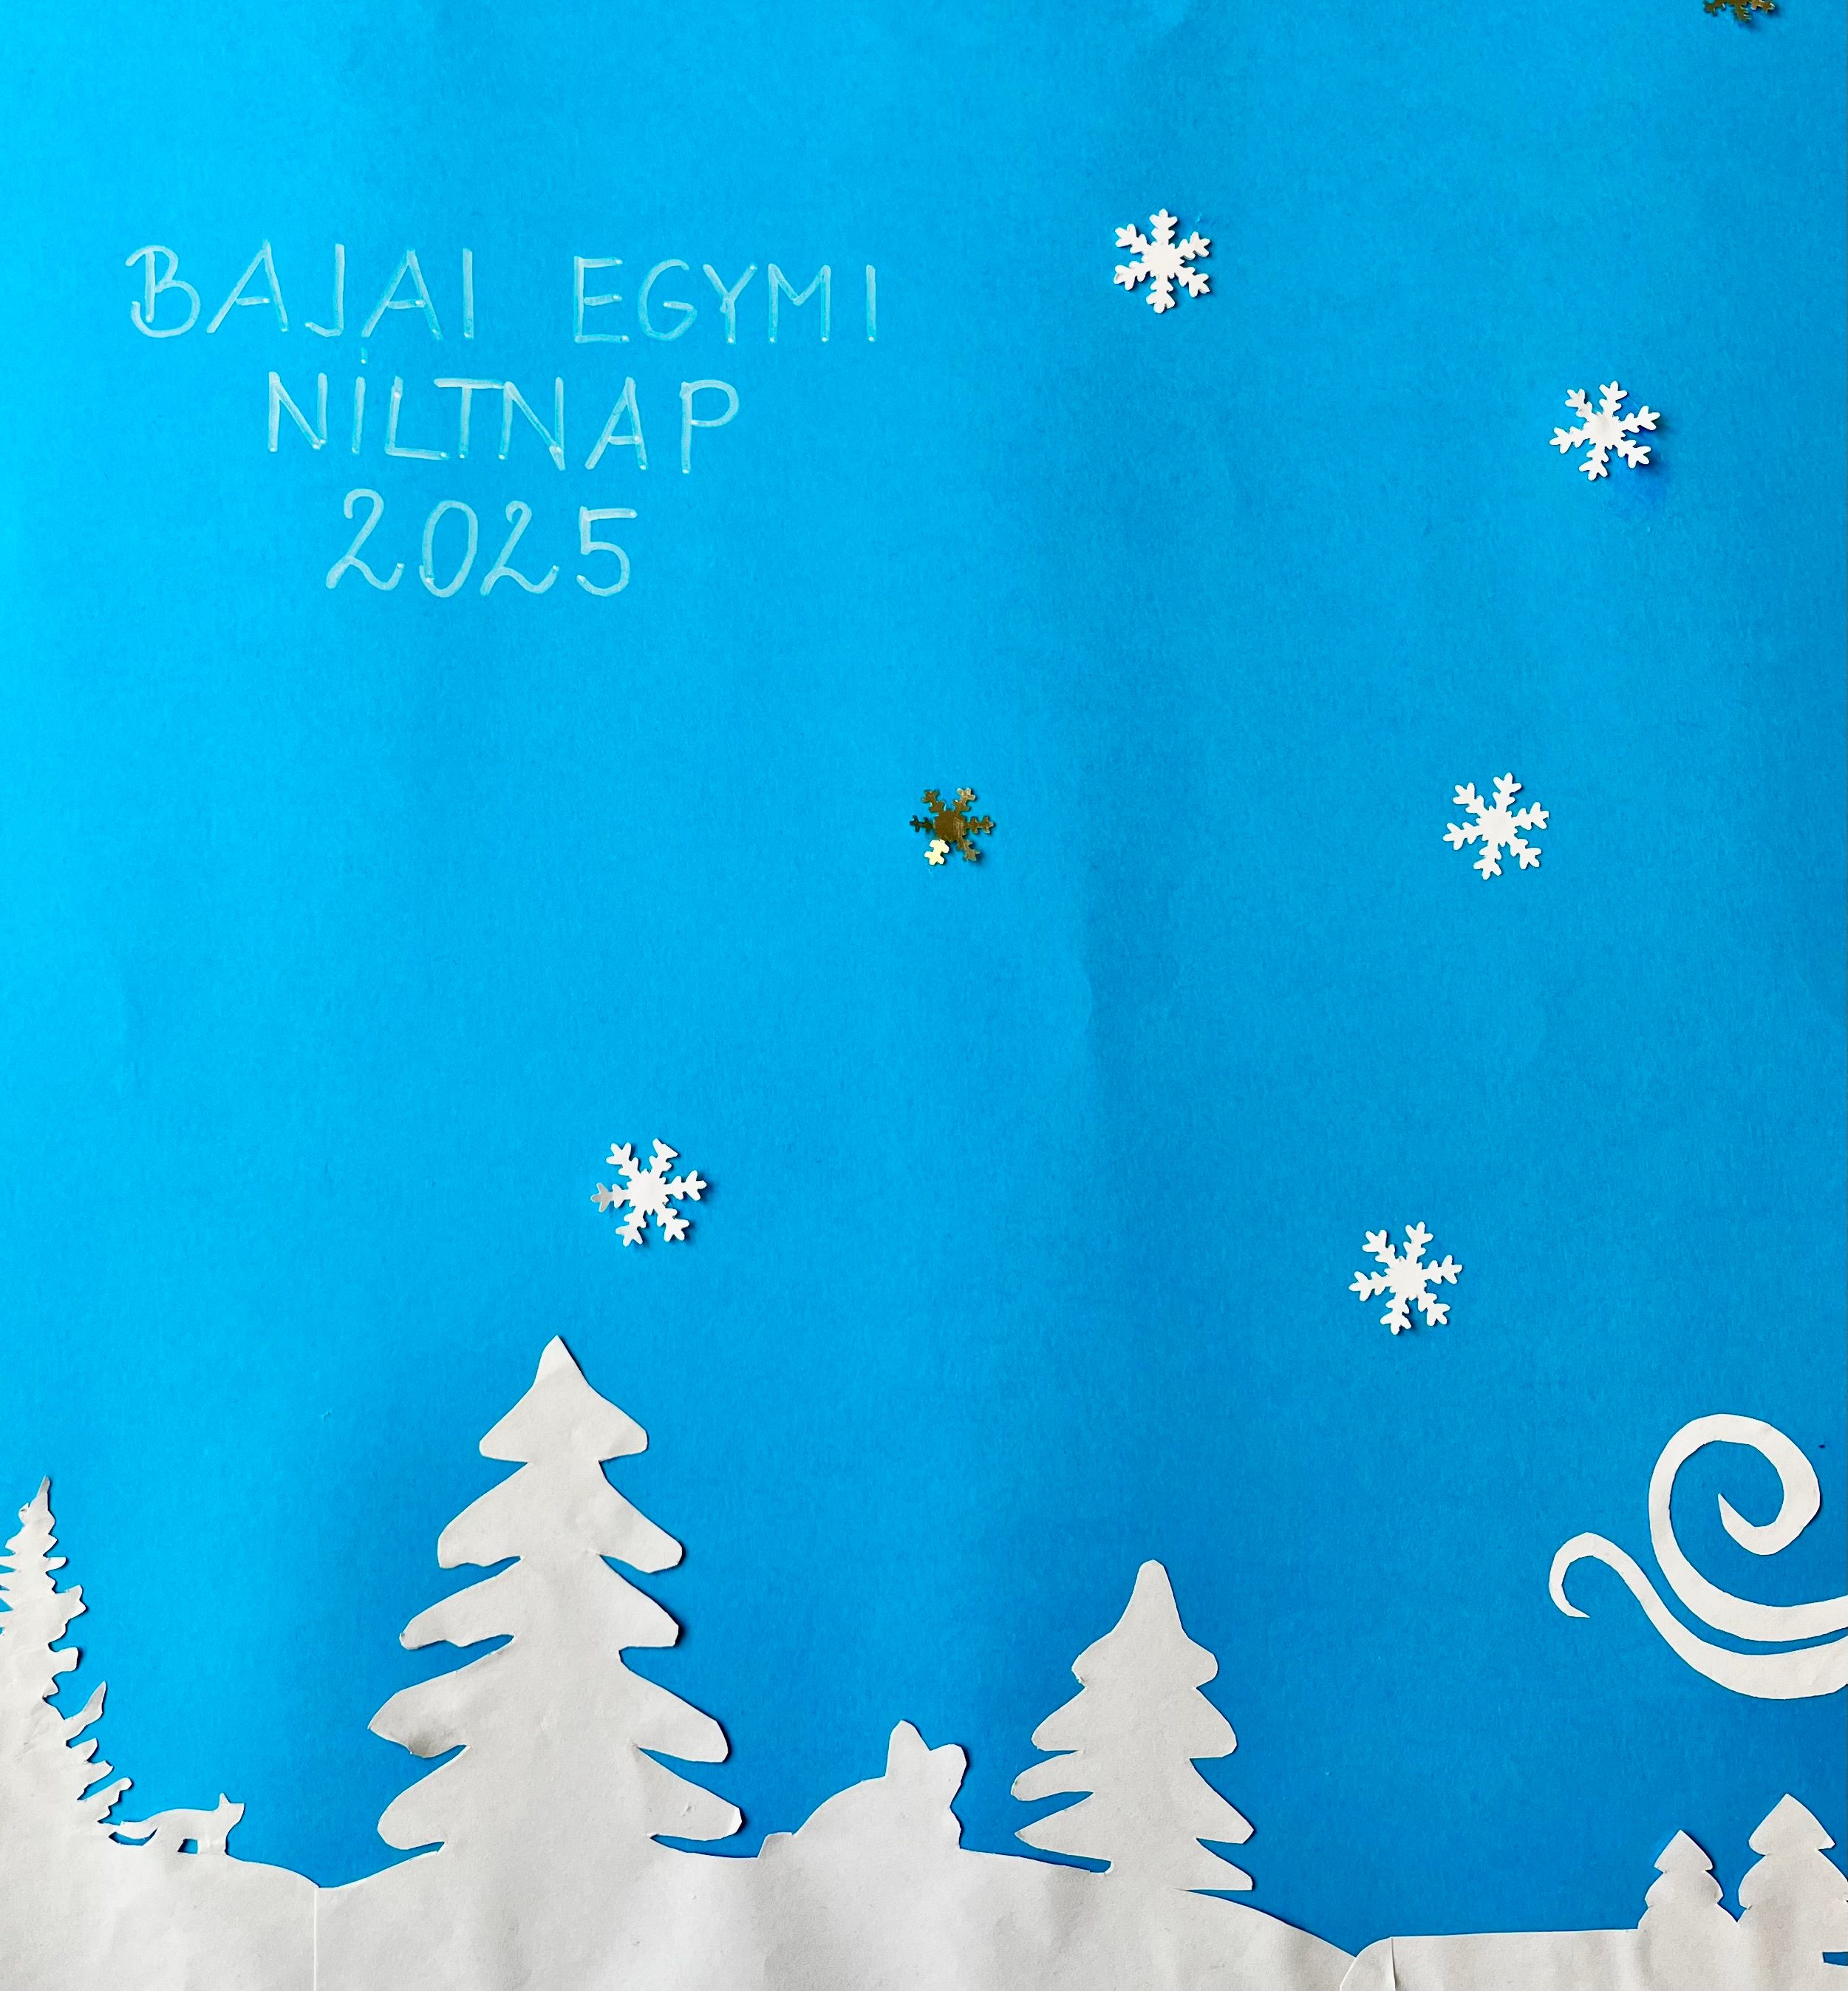 BAJAI EGYMI
NÍLTNAP
2025